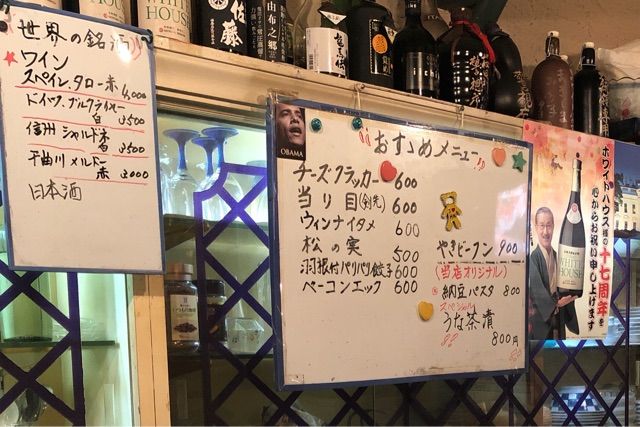 世界の銘酒
ワイン
スペイン、タロー 赤 4,000
白 3500
信州 シャルドネ
白 3500
千曲川 メルロー
赤 3000
日本酒
WHITE
HOUSE
佐藤
由布之郷
OBAMA
おすゝめメニュー
チーズクラッカー 600
当り目(剣先) 600
ウィンナイタメ 600
松の実 500
羽根付パリパリ餃子 600
ベーコンエッグ 600
やきビーフン 900
(当店オリジナル)
納豆パスタ 800
スペシャル
うな茶漬
800円
ホワイトハウス様の十七周年を
心からお祝い申し上げます
WHITE
HOUSE